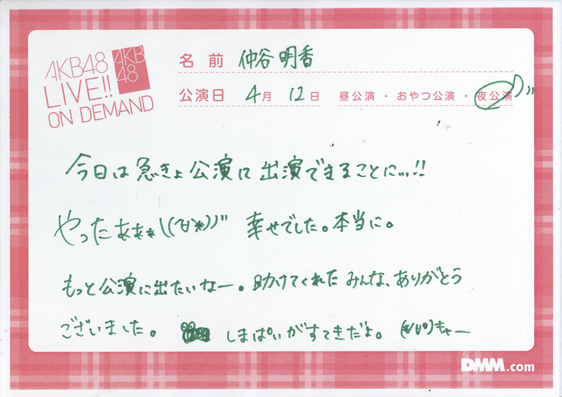 AKB48
LIVE!!
ON DEMAND
AKB
48
名前 仲谷明香
公演日 4月 12日 昼公演・おやつ公演・夜公演
今日は急きょ公演に出演できることに…!!
やったぁぁぁ\((°∀°*))〃 幸せでした。本当に。
もっと公演に出たいなー。助けてくれたみんな、ありがとう
ございました。 しまぱいがすてきだよ。 キャー
DMM.com